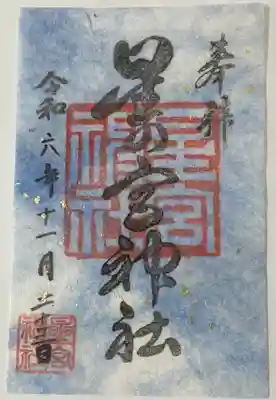 奉拝
星宮神社
星宮神社
令和六年十一月
星宮神社